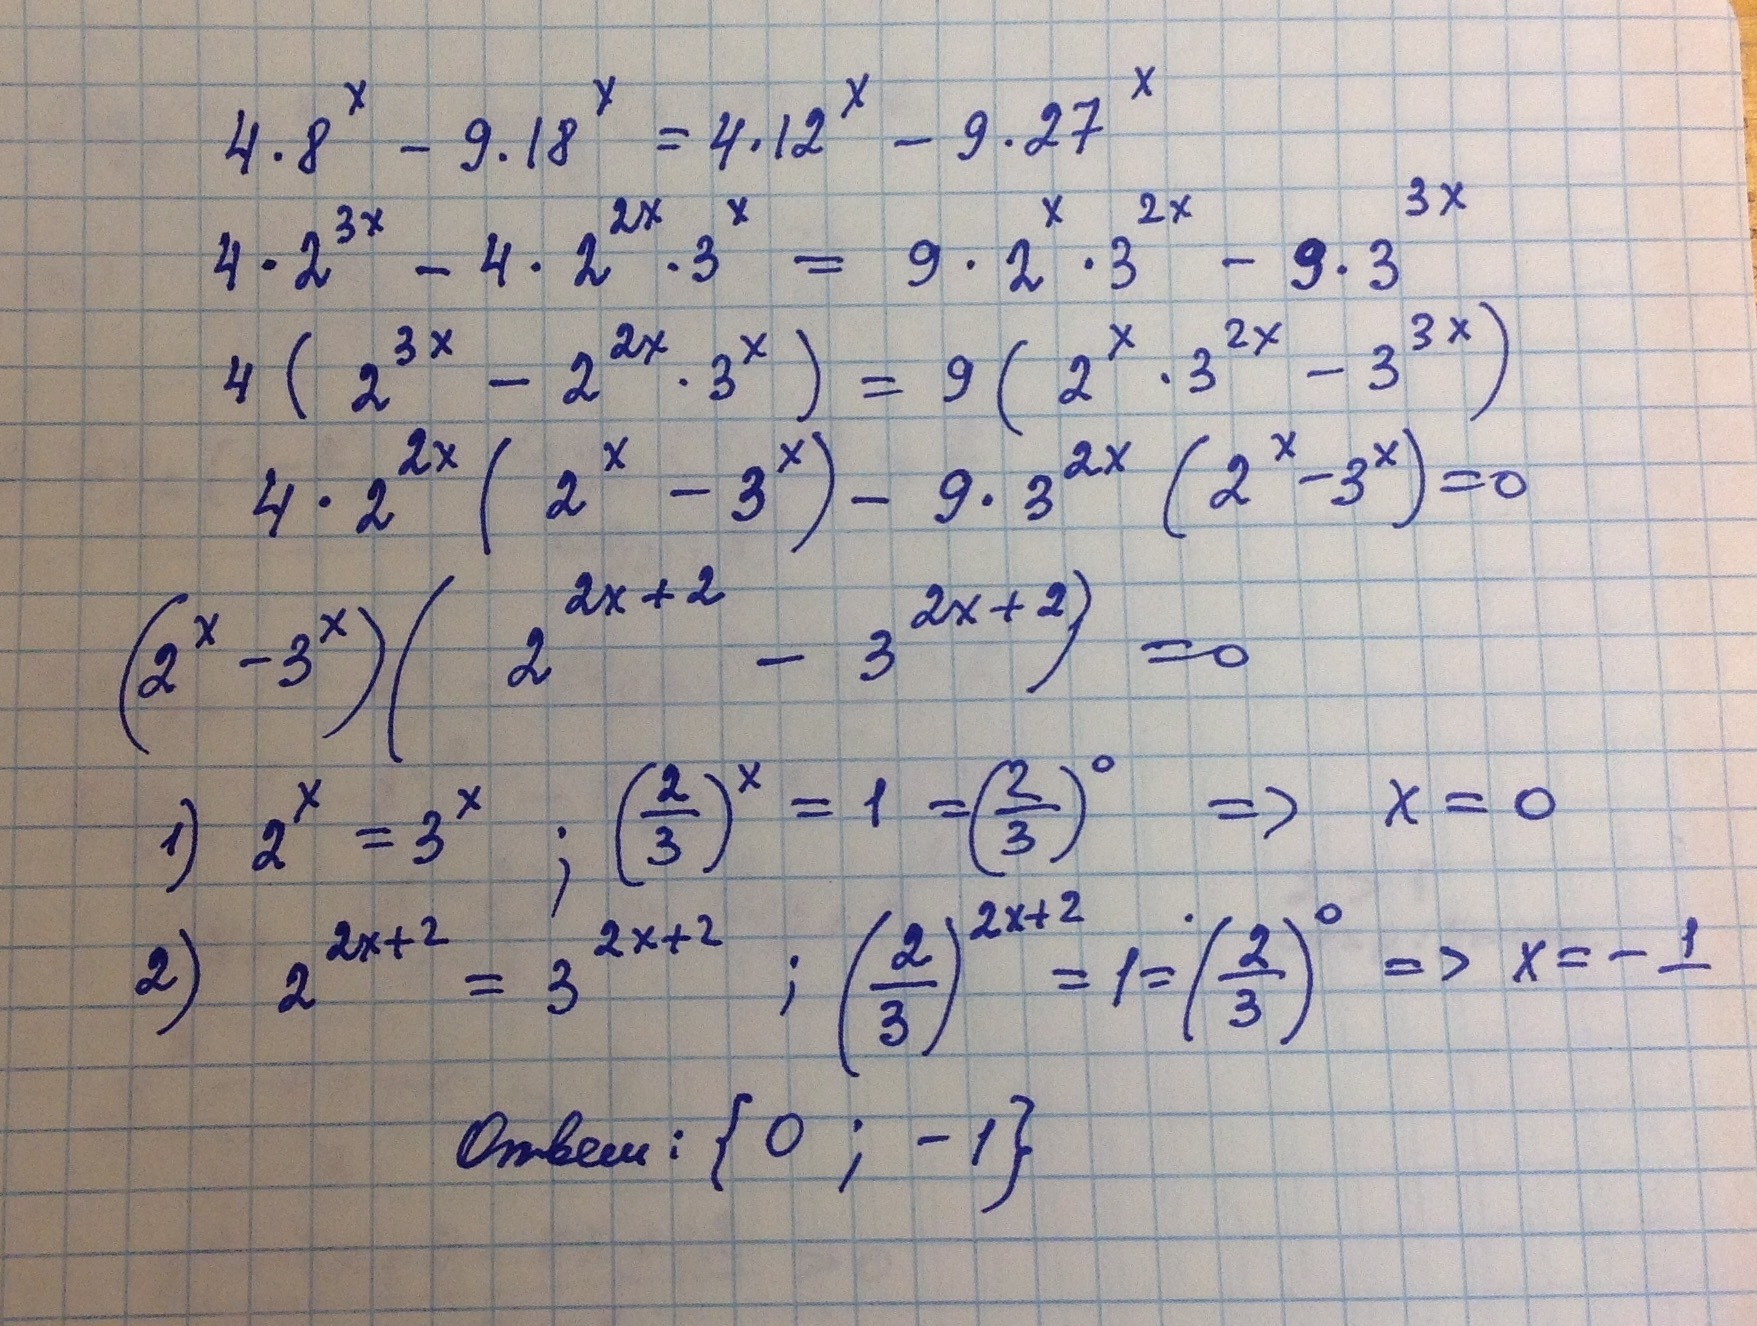 4·8^x − 9·18^x = 4·12^x − 9·27^x
4·2^{3x} − 4·2^{2x}·3^x = 9·2^x·3^{2x} − 9·3^{3x}
4(2^{3x} − 2^{2x}·3^x) = 9(2^x·3^{2x} − 3^{3x})
4·2^{2x}(2^x − 3^x) − 9·3^{2x}(2^x − 3^x) = 0
(2^x − 3^x)(2^{2x+2} − 3^{2x+2}) = 0
1) 2^x = 3^x ; (2/3)^x = 1 = (2/3)^0 => x = 0
2) 2^{2x+2} = 3^{2x+2} ; (2/3)^{2x+2} = 1 = (2/3)^0 => x = −1
Ответ: {0 ; −1}